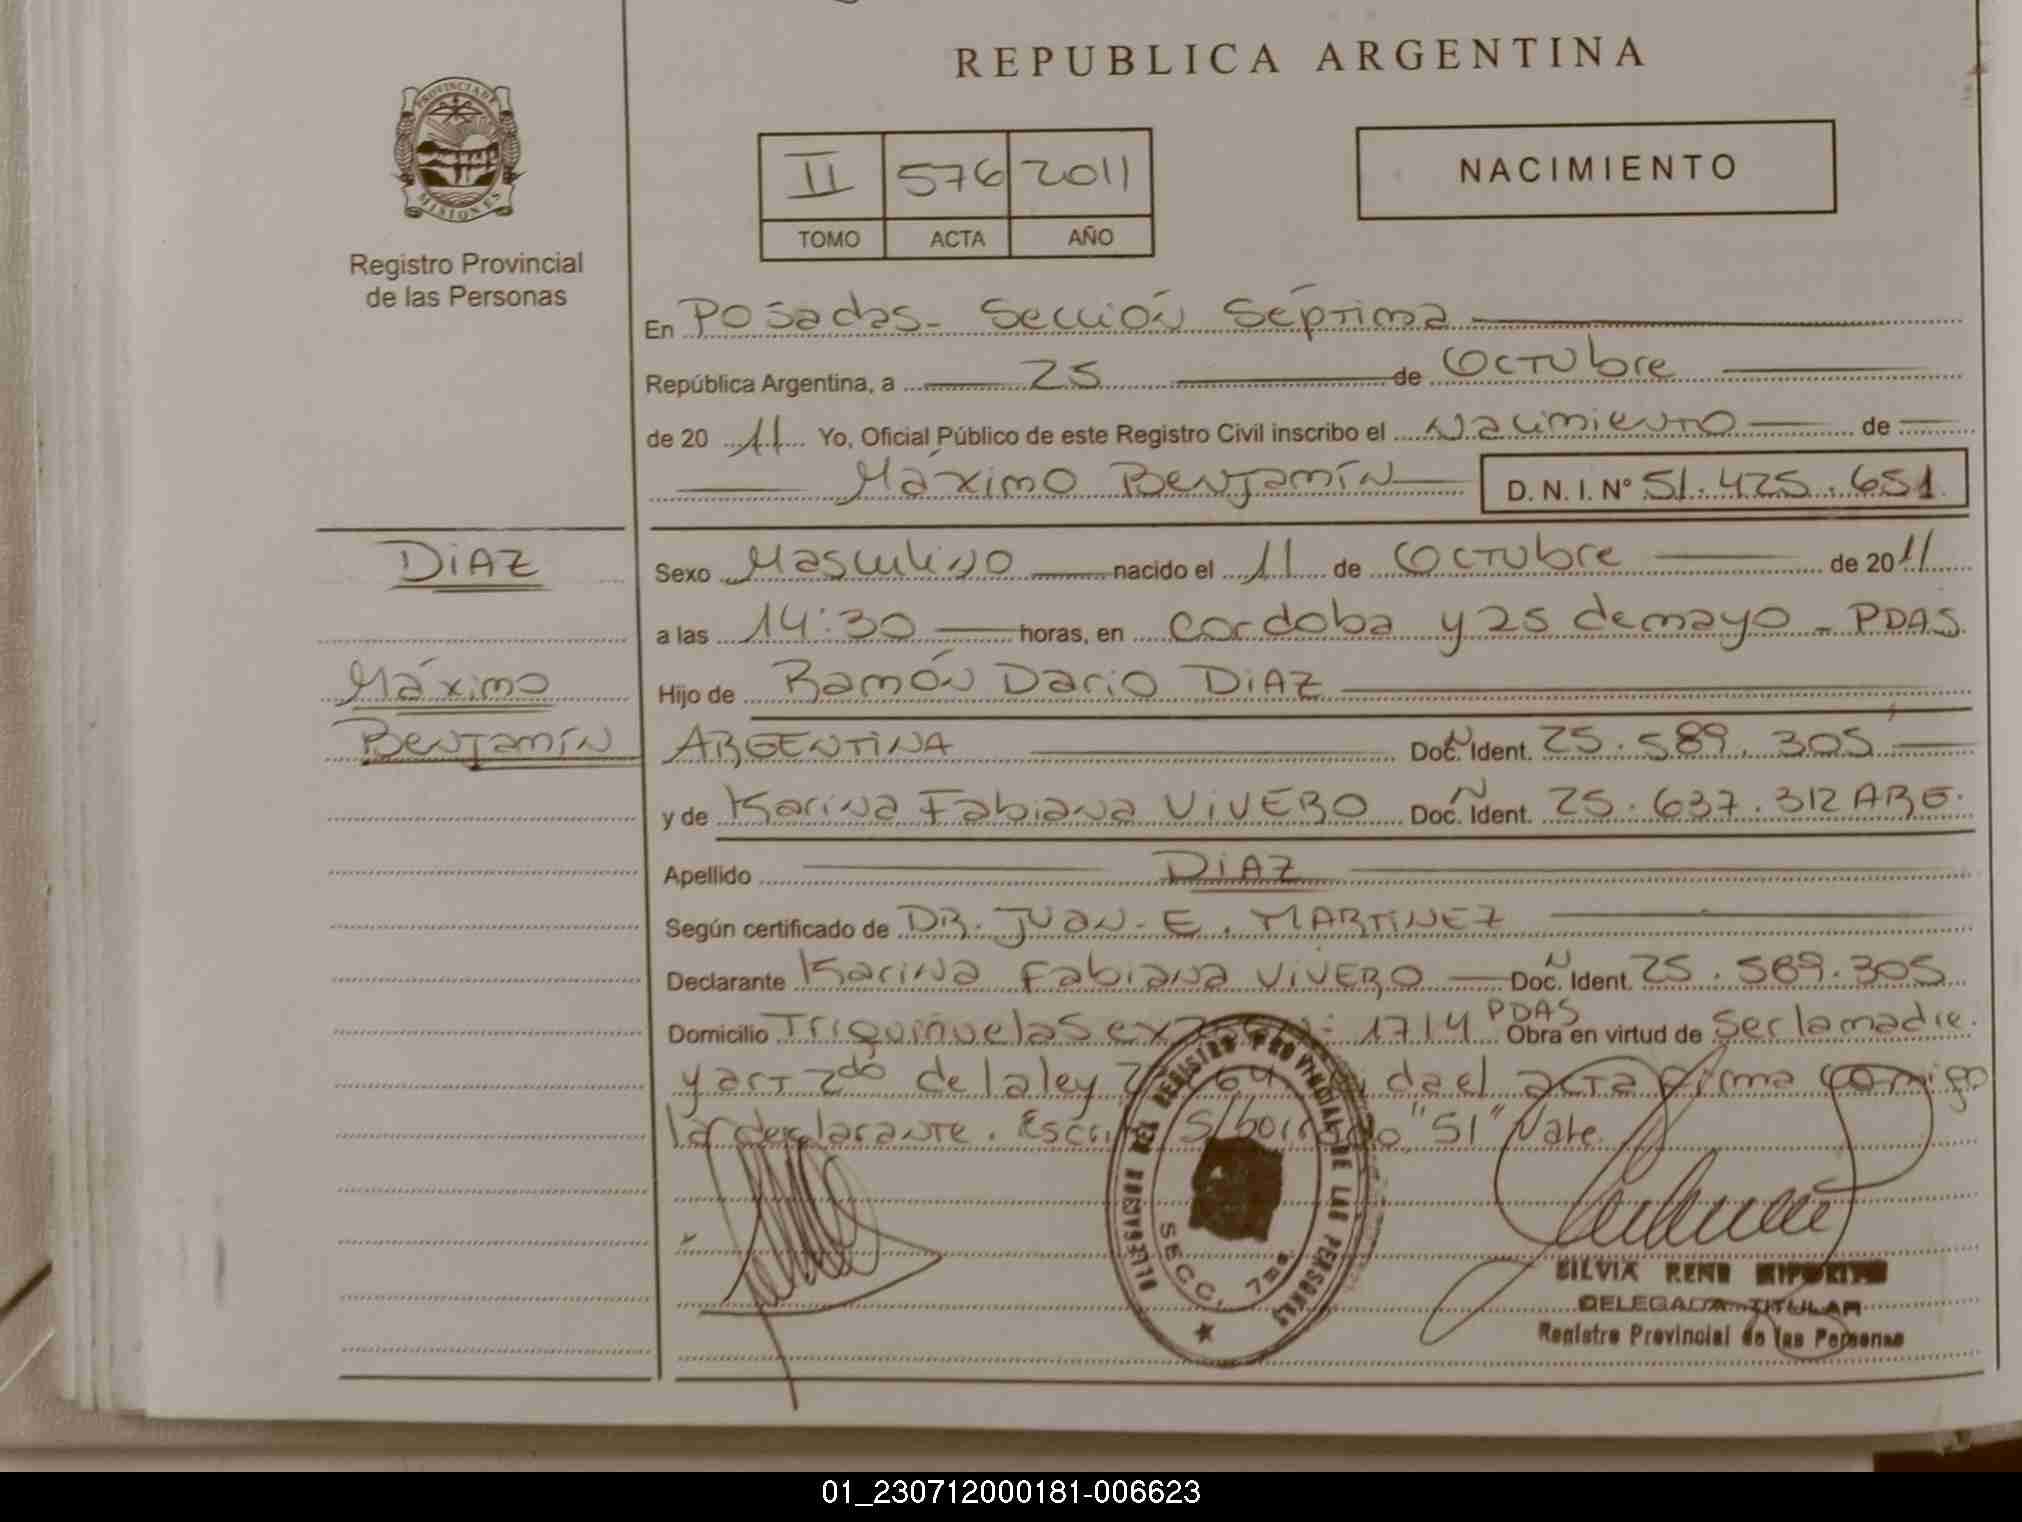 REPUBLICA ARGENTINA
PROVINCIA DE
MISIONES
Registro Provincial
de las Personas
II 576 2011
TOMO ACTA AÑO
NACIMIENTO
En Posadas - Sección Séptima
República Argentina, a 25 de Octubre
de 20 11 Yo, Oficial Público de este Registro Civil inscribo el Nacimiento de
Máximo Benjamín D. N. I. Nº 51.425.651
DiAZ
Máximo
Benjamín
Sexo Masculino nacido el 11 de Octubre de 2011
a las 14:30 horas, en cordoba y 25 de mayo - PDAS.
Hijo de Ramón Dario DiAZ
ARGENTINA Doc. Ident. 25.589.305
y de Karina Fabiana ViVERO Doc. Ident. 25.637.312 ARG.
Apellido DiAZ
Según certificado de DR. JUAN. E. MARTiNEZ
Declarante Karina Fabiana ViVERO Doc. Ident. 25.589.305
Domicilio Triquiñuelas 1714 PDAS Obra en virtud de Ser la madre.
y art 2do de la ley el acta firma conmigo
la declarante. S/borrado "51" Vale.
DELEGACION DEL REGISTRO PROVINCIAL DE LAS PERSONAS
SECC. 7ma
SILVIA RENE
DELEGADA TITULAR
Registro Provincial de las Personas
01_230712000181-006623